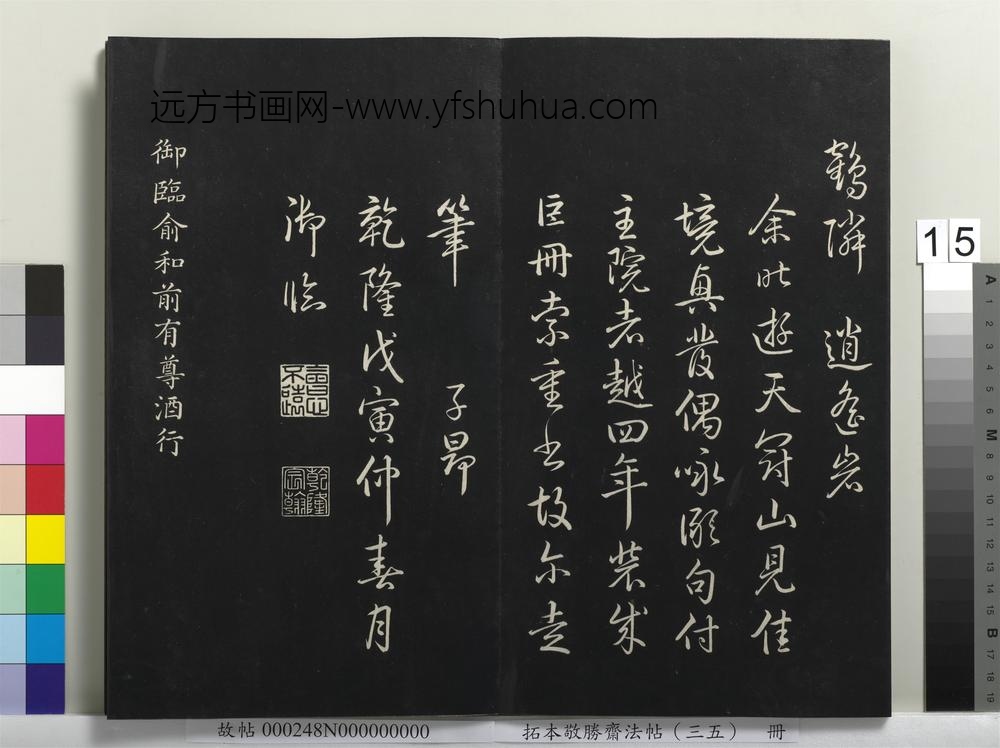 远方书画网-www.yfshuhua.com
鶴隣 逍遙岩
余昨遊天冠山見佳
境真發偶咏
句付
主院老越四年裝成
巨冊索重書故爾走
筆 子昂
乾隆戊寅仲春月
御臨
乾隆宸翰
御臨俞和前有尊酒行
15
A 1 2 3 4 5 6 M 8 9 10 11 12 13 14 15 B 17 18 19
故帖 000248N000000000
拓本敬勝齋法帖（三五） 冊